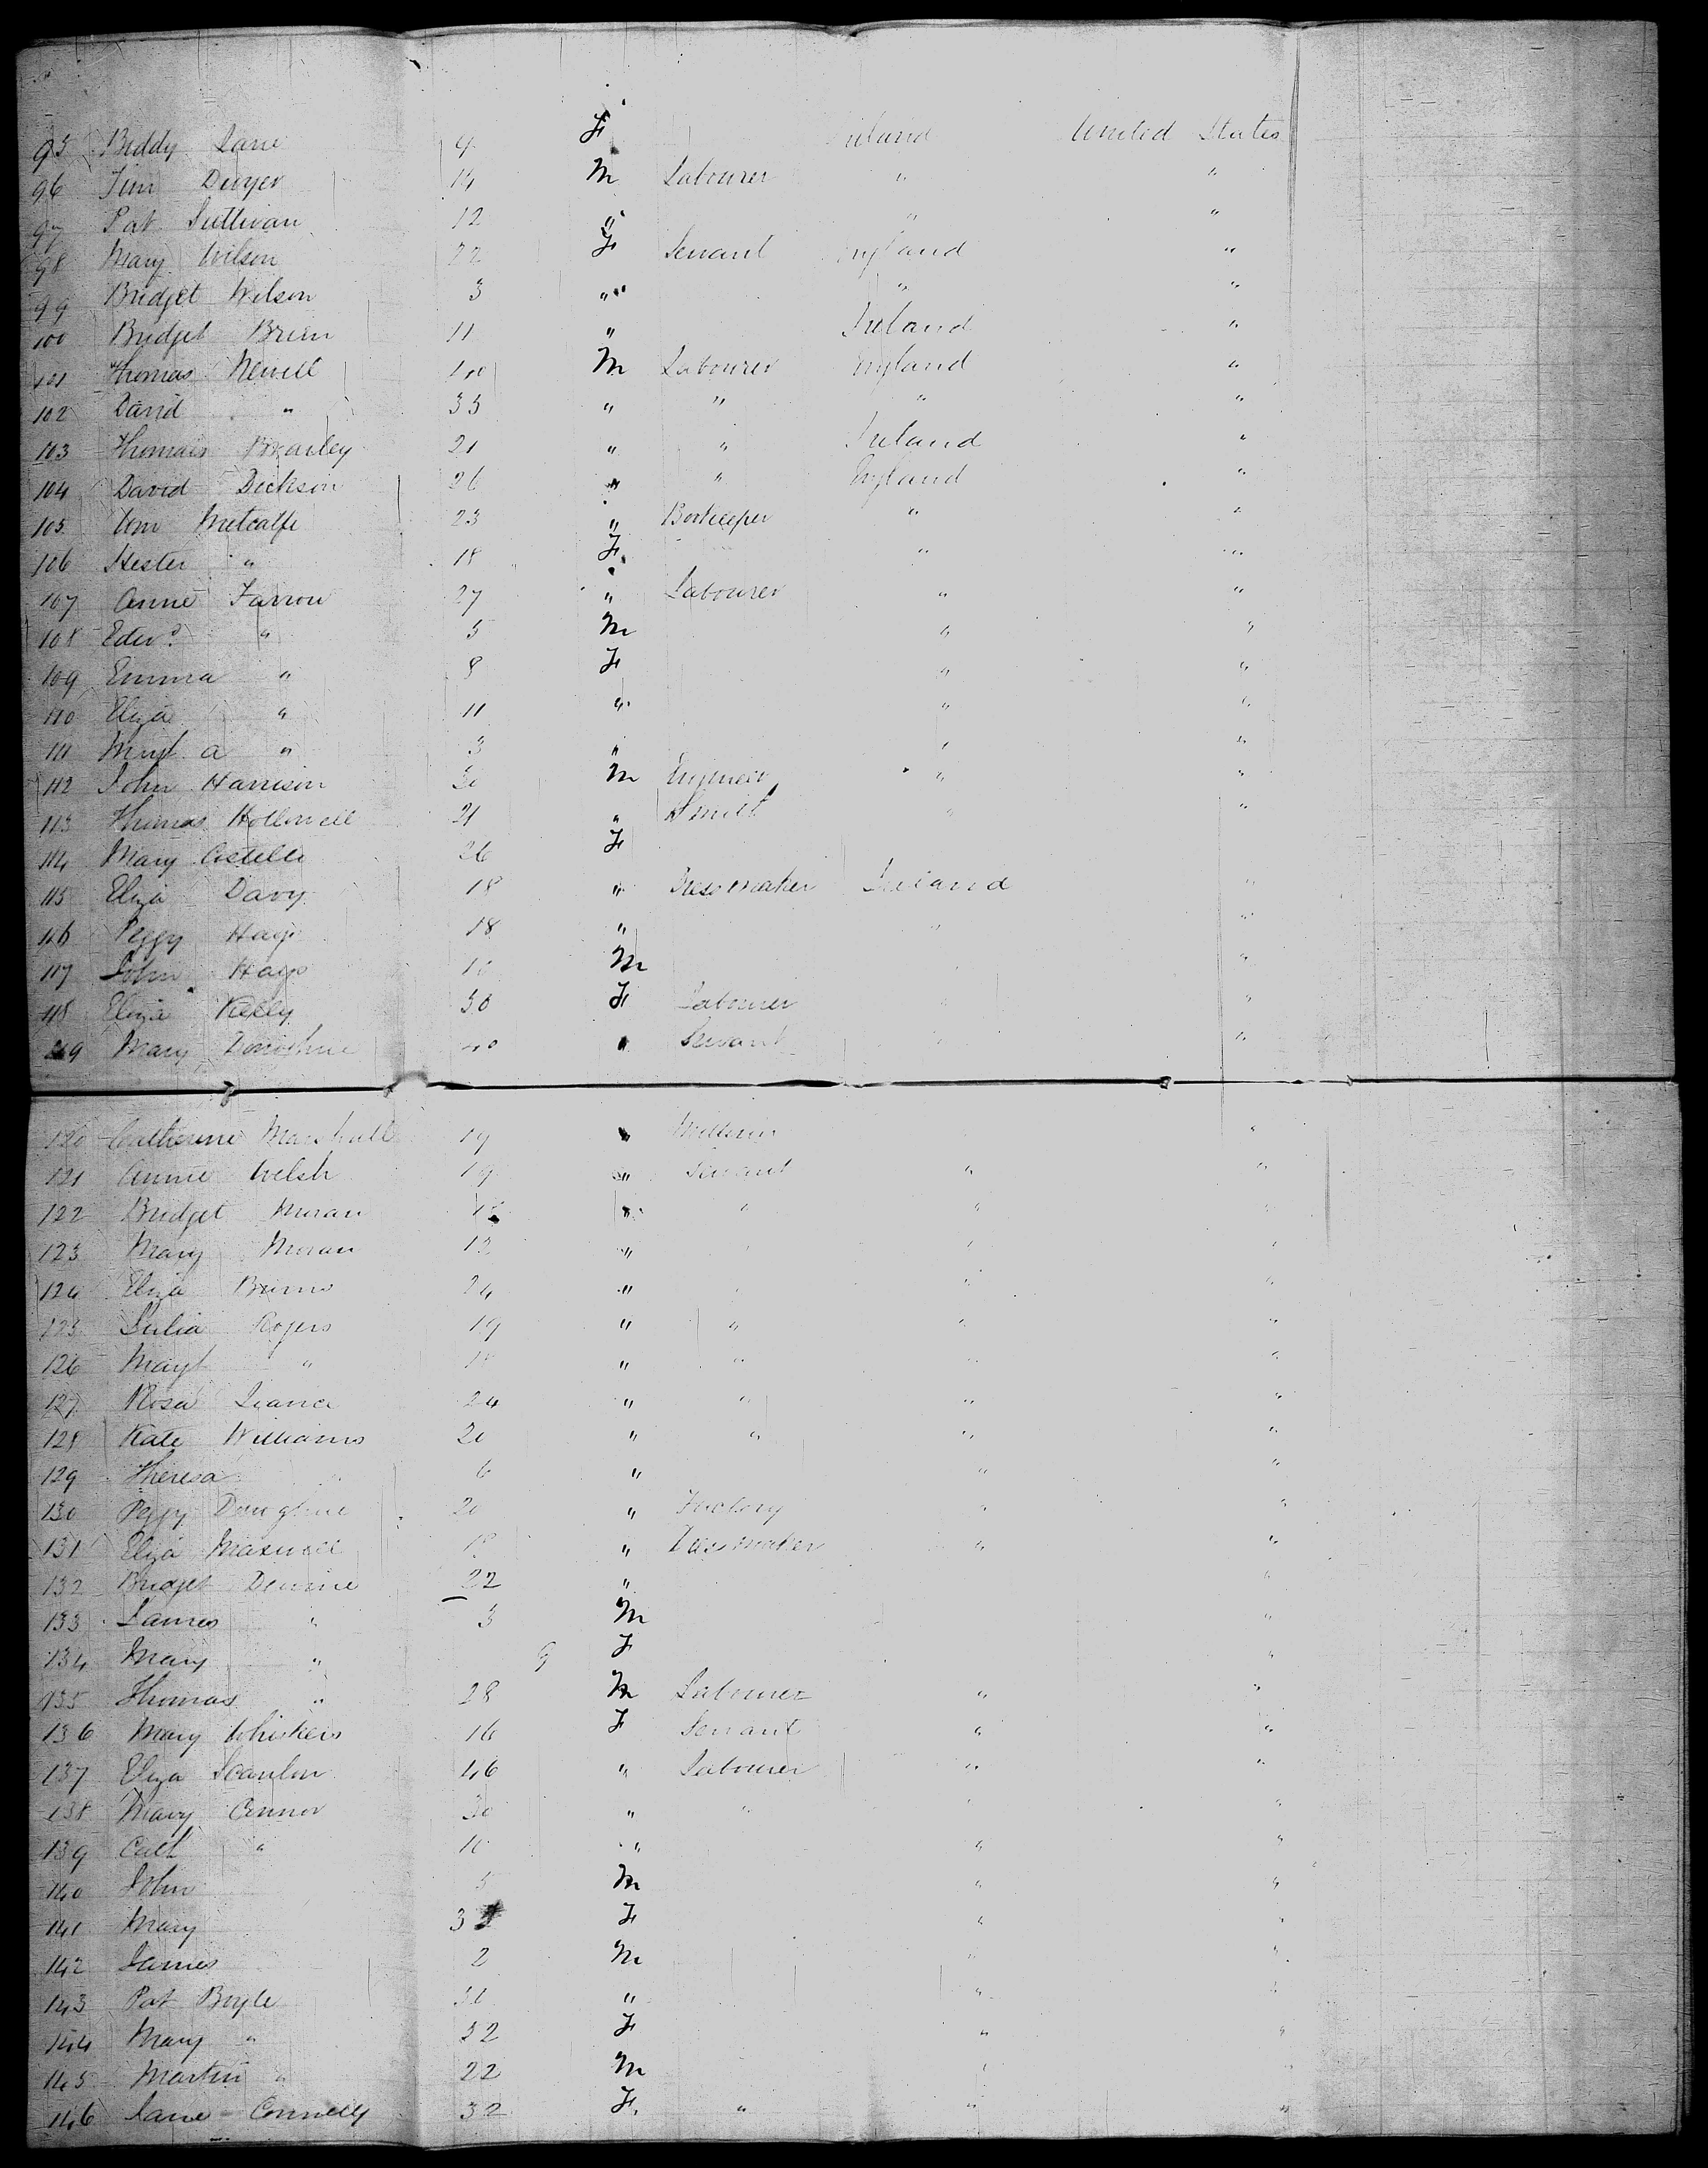 95 Biddy Lane 4 F Ireland United States
96 Tim Dwyer 14 M Labourer " "
97 Pat Sullivan 12 " " "
98 Mary Wilson 22 F Servant England "
99 Bridget Wilson 3 " " "
100 Bridget Brien 11 " Ireland "
101 Thomas Newell 40 M Labourer England "
102 David " 33 " " " "
103 Thomas 21 " " Ireland "
104 David Dickson 26 " " England "
105 Wm Metcalfe 23 " Bookeeper " "
106 Hester " 18 F " "
107 Anne Farrow 27 " Labourer " "
108 Edwd " 5 M " "
109 Emma " 8 F " "
110 Eliza " 11 " " "
111 Margt a " 3 " " "
112 John Harrison 30 M Engineer " "
113 Thomas Hollowell 21 " Smith " "
114 Mary Costello 26 F
115 Eliza Davy 18 " Dressmaker Ireland "
116 Peggy Hays 18 " " "
117 John Hays 10 M "
118 Eliza Kelly 30 F Labourer " "
119 Mary Donoghue 40 " Servant "
120 Catherine Marshall 19 " Milliner "
121 Annie Welsh 19 " Servant " "
122 Bridget Moran " " " "
123 Mary Moran 12 " " "
124 Eliza Burns 24 " " " "
125 Julia Rogers 19 " " " "
126 Margt " " " " "
127 Rosa 24 " " " "
128 Kate Williams 20 " " " "
129 Theresa 6 " " "
130 Peggy Donoghue 20 " Factory " "
131 Eliza Maxwell " Dressmaker " "
132 Bridget 22 " "
133 James " 3 M "
134 Mary " 9 F "
135 Thomas " 28 M Labourer " "
136 Mary Whiskers 16 F Servant " "
137 Eliza Scanlon 46 " Labourer " "
138 Mary Connor 30 " " " "
139 Cath " 10 " " "
140 John 5 M " "
141 Mary 3 F " "
142 James 2 M " "
143 Pat Boyle 30 " " "
144 Mary " 32 F " "
145 Martin " 22 M " "
146 Jane Connelly 32 F " " "